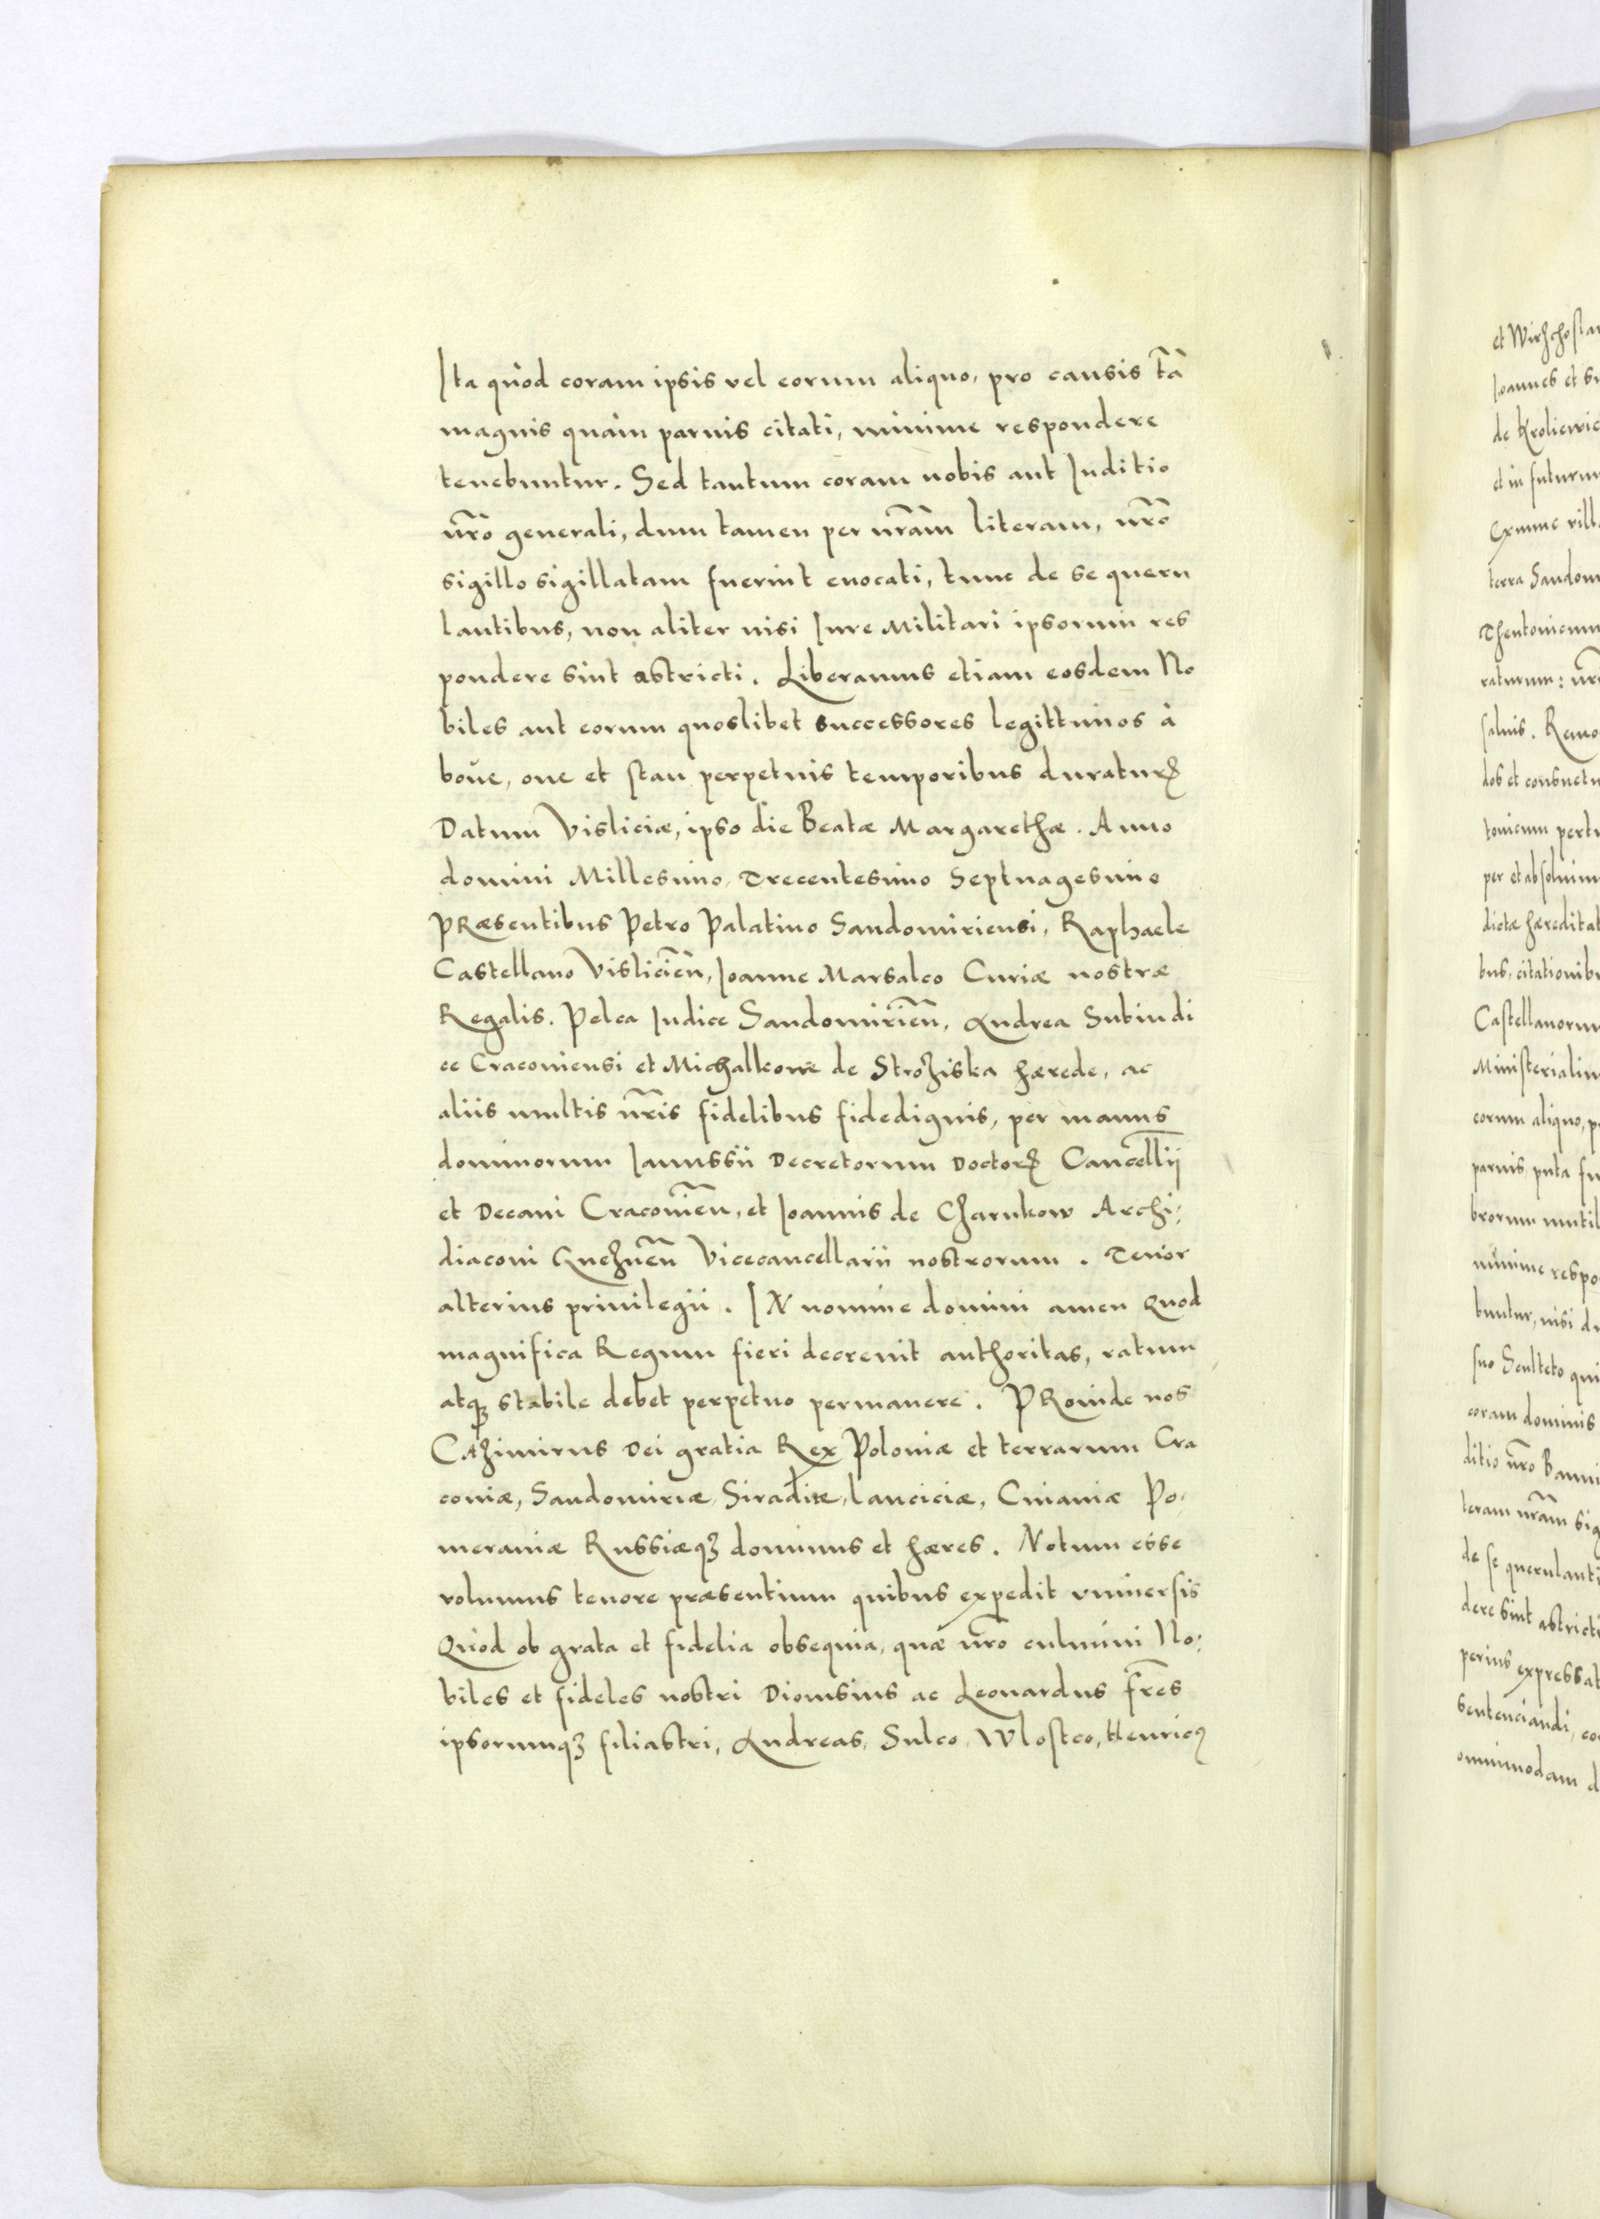 Ita quòd coram ipsis vel eorum aliquo, pro causis tā
magnis quàm paruis citati, minime respondere
tenebuntur. Sed tantum coram nobis aut Iuditio
nr̃o generali, dum tamen per nr̃am literam, nr̃o
sigillo sigillatam fuerint euocati, tunc de se queru
lantibus, non aliter nisi Iure Militari ipsorum res
pondere sint astricti. Liberamus etiam eosdem No
biles aut eorum quoslibet successores legittimos à
boue, oue et stan perpetuis temporibus duraturꝝ
Datum Visliciæ, ipso die Beatæ Margarethæ. Anno
domini Millesimo, Trecentesimo Septuagesimo
PRæsentibus Petro Palatino Sandomiriensi, Raphaele
Castellano Visliciēn, Ioanne Marsalco Curiæ nostræ
Regalis. Pelca Iudice Sandomiriēn, Andrea Subiudi
ce Cracouiensi et Michalkone de Stroziska hærede, ac
aliis multis nr̃is fidelibus fidedignis, per manus
dominorum Ianussii Decretorum Doctorꝝ Cancellij
et Decani Cracouiēn, et Ioannis de Charnkow Archi-
diaconi Gneznēn Vicecancellarii nostrorum. Tenor
alterius priuilegii. IN nomine domini amen Quod
magnifica Regum fieri decreuit authoritas, ratum
atqꝫ stabile debet perpetuo permanere. PRoinde nos
CAzimirus Dei gratia Rex Poloniæ et terrarum Cra
couiæ, Sandomiriæ, Siradiæ, lanciciæ, Cuiauiæ Po-
meraniæ Russiæqꝫ dominus et hæres. Notum esse
volumus tenore præsentium quibus expedit vniuersis
Quòd ob grata et fidelia obsequia, quæ nr̃o culmini No-
biles et fideles nostri Dionisius ac Leonardus fr̃es
ipsorumqꝫ filiastri, Andreas, Sulco, Wlostco, Henricꝰ
et Wirzchosla
Ioannes et
de Krolewic
et in futurum
terra Sandom
Theutonicum
raturum: nr̃
saluis. Remo
dos et consuetu
tonicum pertu
per et absoluim
dictæ hæreditat
bus, citationibu
Castellanorum
Ministerialiu
eorum aliquo, p
paruis, puta fu
brorum mutil
minime respo
buntur, nisi du
suo Sculteto qui
coram dominis
ditio nr̃o Banni
teram nr̃am sig
de se querulanti
dere sint astricti
perius expressat
sentenciandi, co
omnimodam d